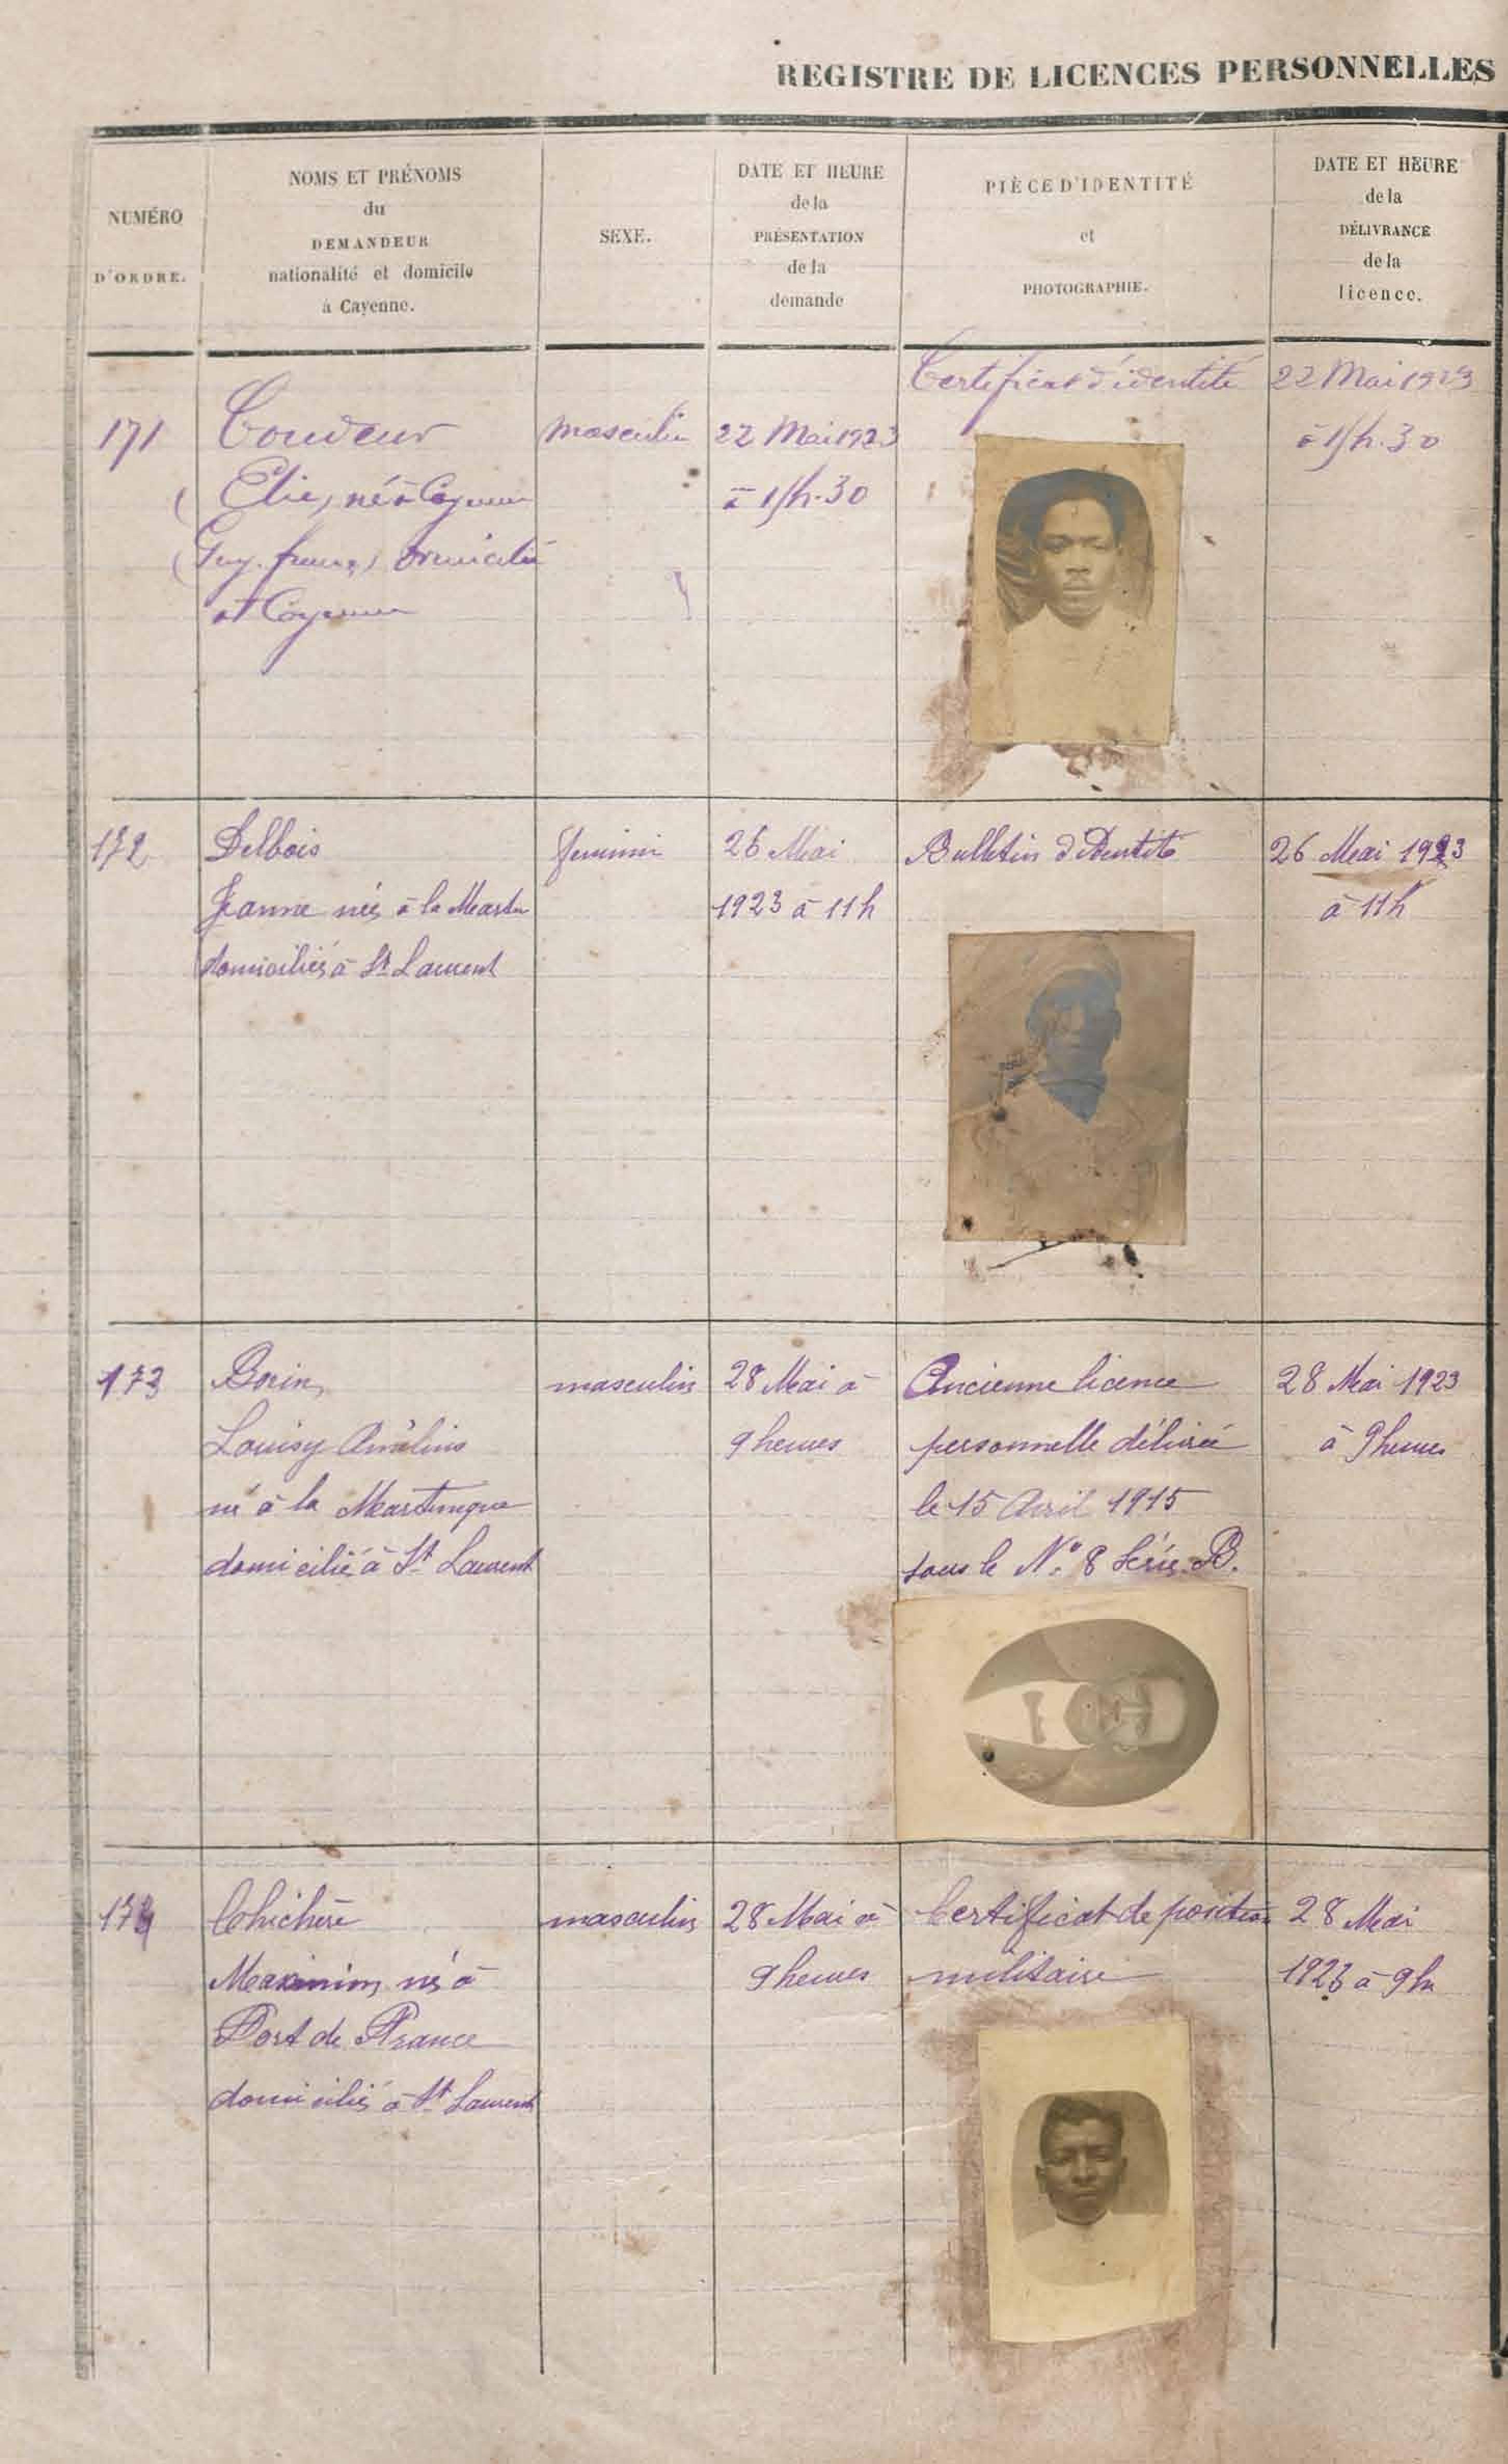 REGISTRE DE LICENCES PERSONNELLES
NUMÉRO
D'ORDRE.
NOMS ET PRÉNOMS
du
DEMANDEUR
nationalité et domicile
à Cayenne.
SEXE.
DATE ET HEURE
de la
PRÉSENTATION
de la
demande
PIÈCE D'IDENTITÉ
et
PHOTOGRAPHIE.
DATE ET HEURE
de la
DÉLIVRANCE
de la
licence.
171
Coudeur
Elie, né à Cayenne
(Guy. franç) domicilié
at Cayenne
masculin
22 Mai 1923
à 15h.30
Certificat d'identité
22 Mai 1923
à 15h.30
172
Delbois
Jeanne née à la Martin
domiciliée à St Laurent
feminin
26 Mai
1923 à 11h
Bulletin d'identité
26 Mai 1923
à 11h
173
Borin
Louisy
né à la Martinique
domicilié à St Laurent
masculin
28 Mai à
9 heures
Ancienne licence
personnelle délivrée
le 15 Avril 1915
sous le N° 8 Série B.
28 Mai 1923
à 9 heures
174
Chichère
Maximin né à
Fort de France
domicilié à St Laurent
masculin
28 Mai à
9 heures
Certificat de position
militaire
28 Mai
1923 à 9h